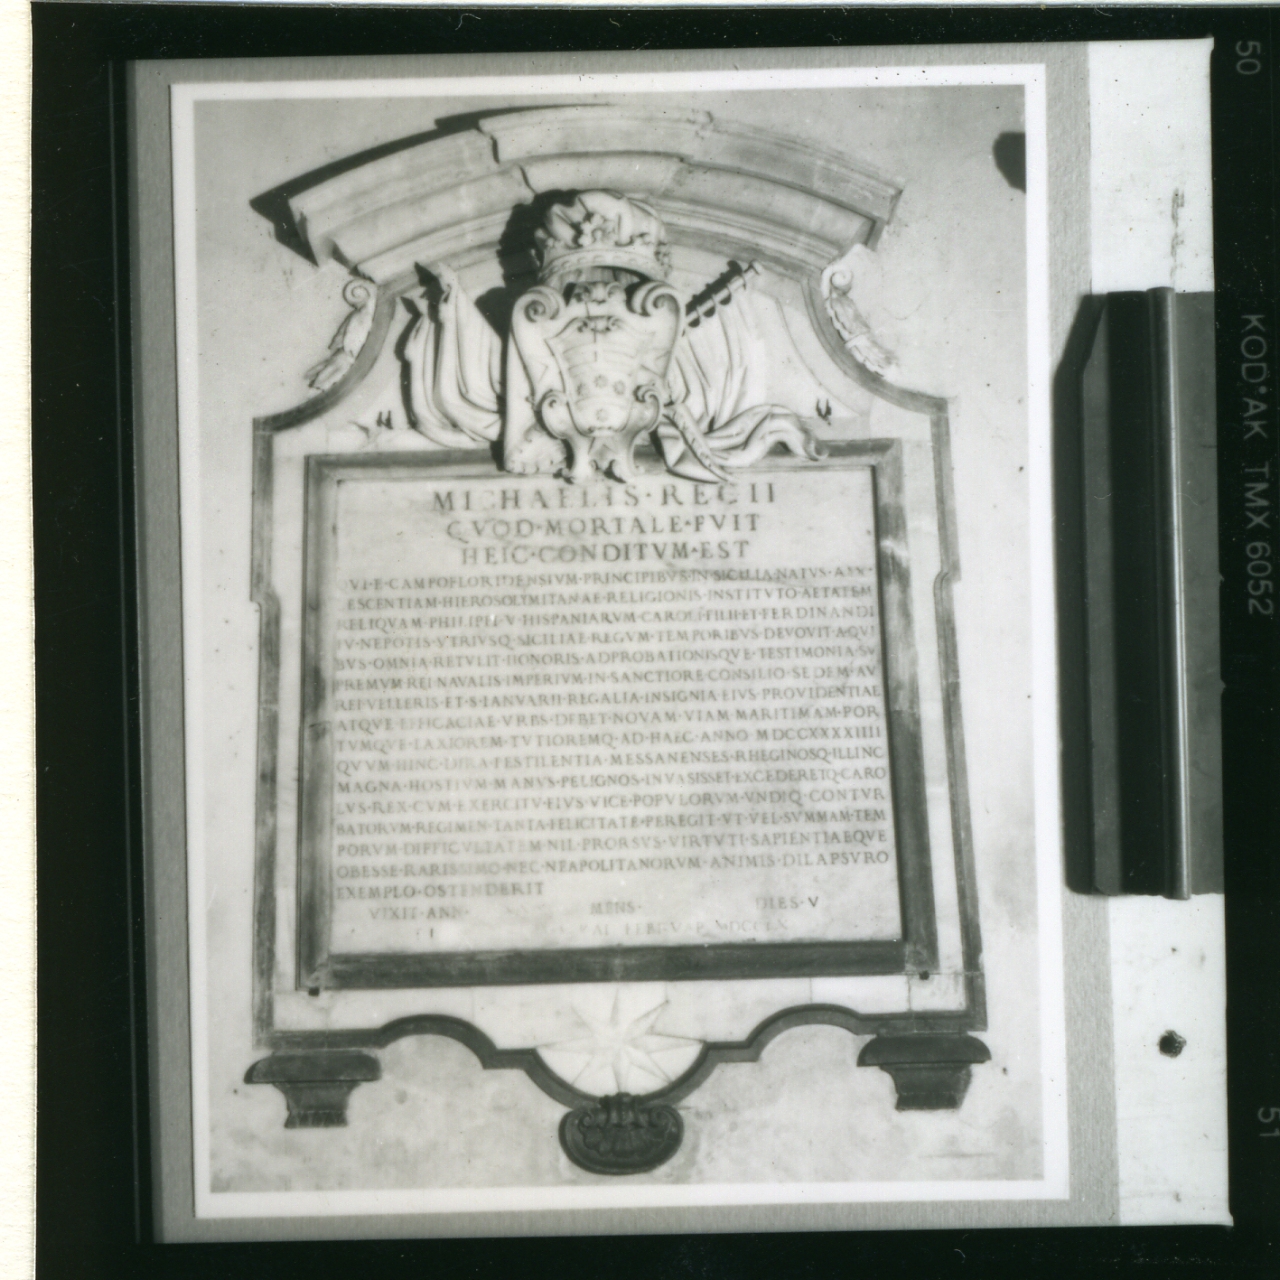 MICHAELIS·REGII
QVOD·MORTALE·FVIT
HEIC·CONDITVM·EST
QVI·E·CAMPOFLORIDENSIVM·PRINCIPIBVS·IN·SICILIA·NATVS·
ESCENTIAM·HIEROSOLYMITANAE·RELIGIONIS·INSTITVTO·AETATEM
RELIQVAM·PHILIPPI·V·HISPANIARVM·CAROLI·FILII·ET·FERDINANDI
IV·NEPOTIS·VTRIVSQ·SICILIAE·REGVM·TEMPORIBVS·DEVOVIT·A·QVI
BVS·OMNIA·RETVLIT·HONORIS·ADPROBATIONISQVE·TESTIMONIA·SV
PREMVM·REI·NAVALIS·IMPERIVM·IN·SANCTIORE·CONSILIO·SEDEM·AV
REI·VELLERIS·ET·S·IANVARII·REGALIA·INSIGNIA·EIVS·PROVIDENTIAE
ATQVE·EFFICACIAE·VRBS·DEBET·NOVAM·VIAM·MARITIMAM·POR
TVMQVE·LAXIOREM·TVTIOREMQ·AD·HAEC·ANNO·MDCCXXXXIIII
QVVM·HINC·DIRA·PESTILENTIA·MESSANENSES·RHEGINOSQ·ILLINC
MAGNA·HOSTIVM·MANVS·PELIGNOS·INVASISSET·EXCEDERETQ·CARO
LVS·REX·CVM·EXERCITV·EIVS·VICE·POPVLORVM·VNDIQ·CONTVR
BATORVM·REGIMEN·TANTA·FELICITATE·PEREGIT·VT·VEL·SVMMAM·TEM
PORVM·DIFFICVLTATEM·NIL·PRORSVS·VIRTVTI·SAPIENTIAEQVE
OBESSE·RARISSIMO·NEC·NEAPOLITANORVM·ANIMIS·DILAPSVRO
EXEMPLO·OSTENDERIT
VIXIT·ANN· MENS· DIES·V
FEBRVAR
50
KODAK TMX 6052
51